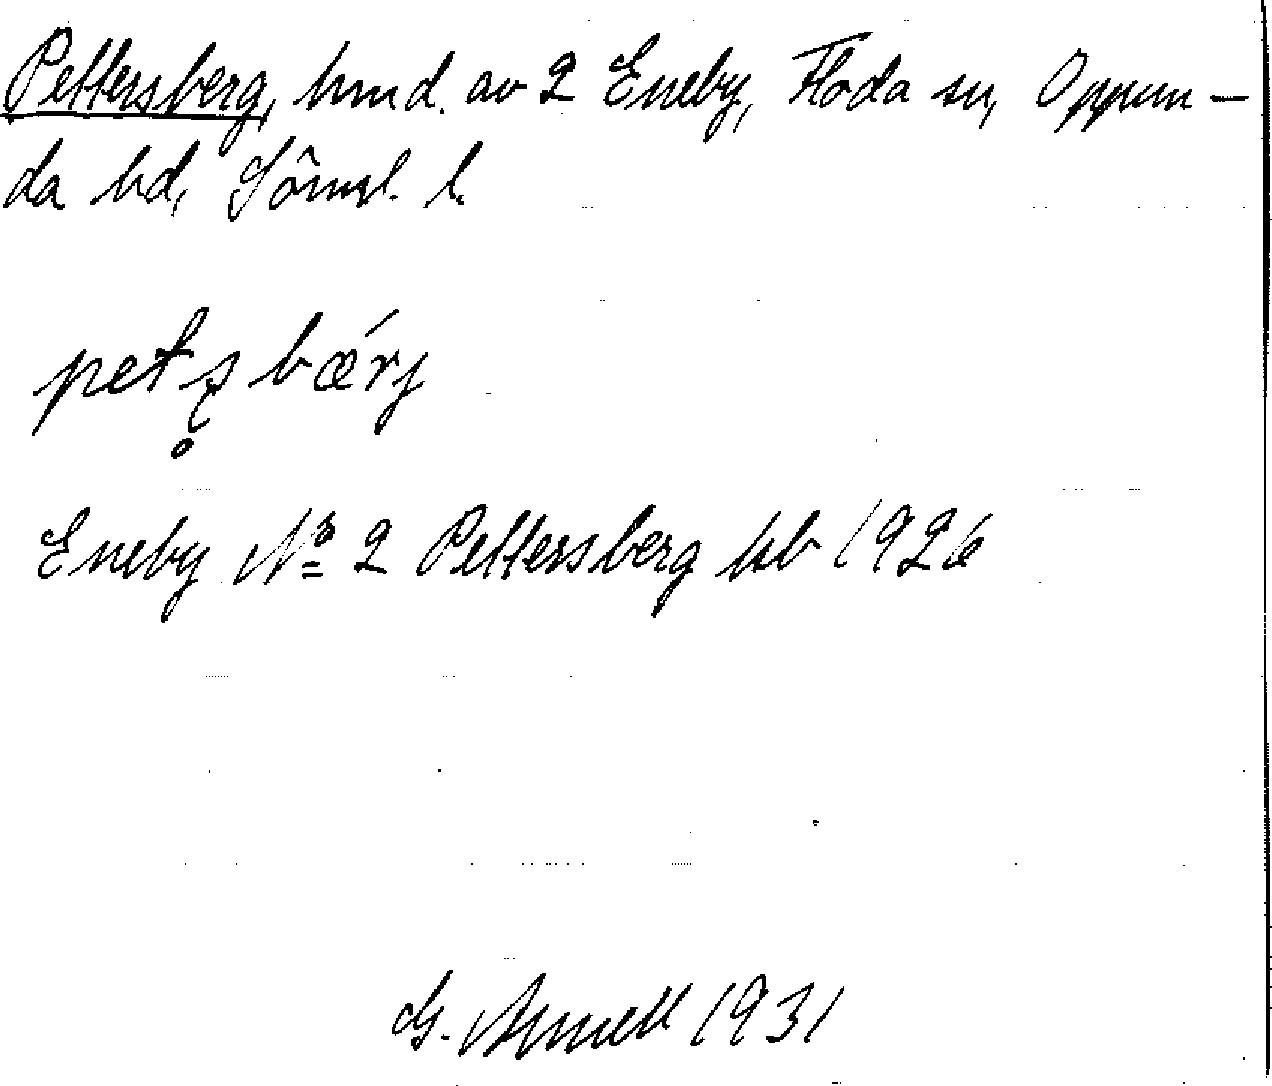 Pettersberg, hmd. av 2 Eneby, Floda sn, Oppun-
da hd, Sörml. l.
petʂ̥bærj
Eneby No 2 Pettersberg kb 1926
G. 1931